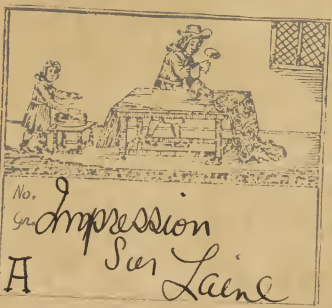 No.
Yrs. Impression
Sur
A Laine